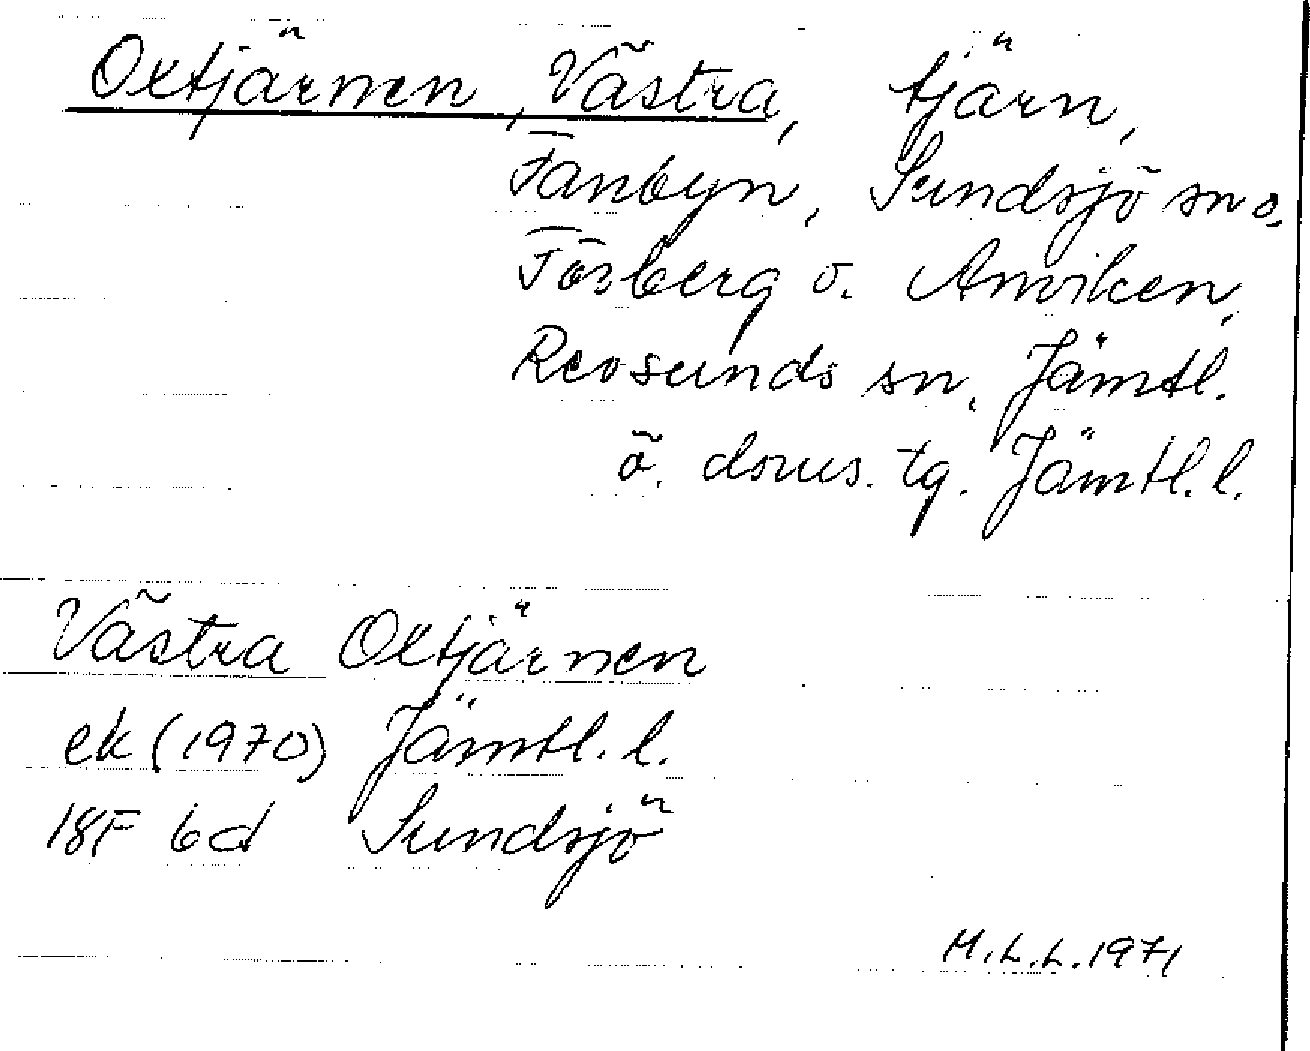 Oxtjärnen, Västra, tjärn,
Fanbyn, Sundsjö sn o.
Förberg o. Anviken,
Revsunds sn, Jämtl.
ö. doms. tg. Jämtl. l.
Västra Oxtjärnen
ek (1970) Jämtl. l.
18F 6d Sundsjö
M.L.L. 1971